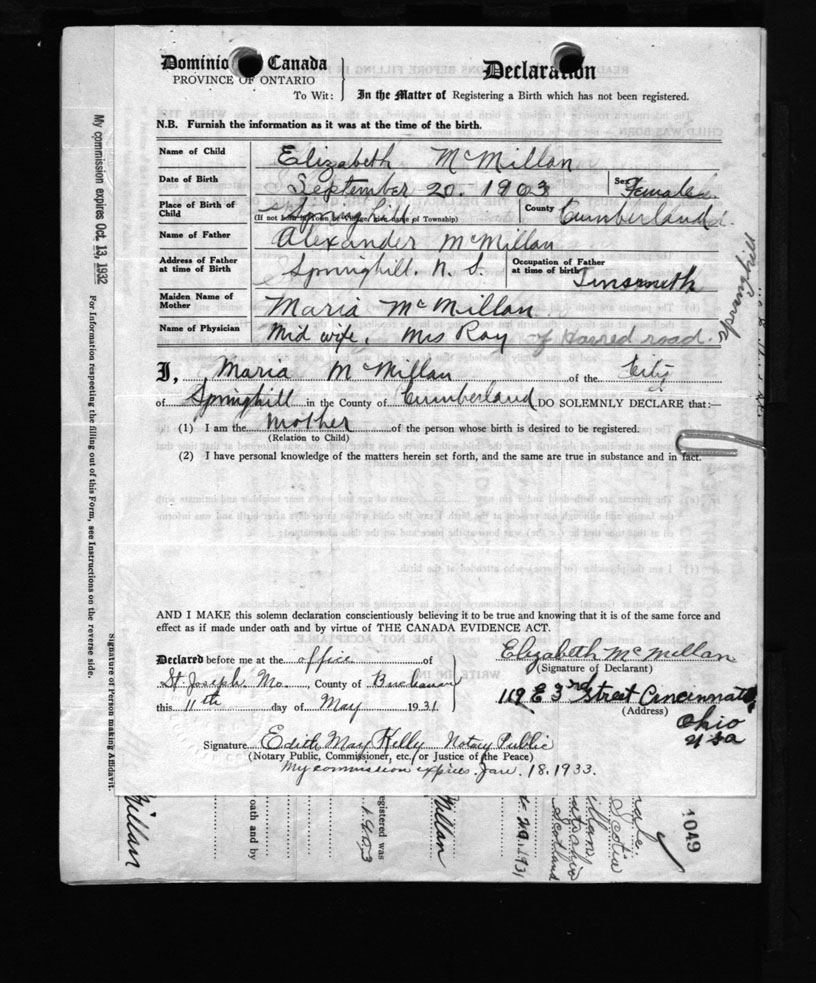 Dominion Canada
PROVINCE OF ONTARIO
To Wit:
Declaration
In the Matter of Registering a Birth which has not been registered.
N.B. Furnish the information as it was at the time of the birth.
Name of Child Elizabeth McMillan
Date of Birth September 20. 1903 Sex Female
Place of Birth of Child Spring Hill County Cumberland
(If not born in Town or Village, give name of Township)
Name of Father Alexander McMillan
Address of Father at time of Birth Springhill. N. S. Occupation of Father at time of birth Tinsmith
Maiden Name of Mother Maria McMillan
Name of Physician Mid wife, Mrs Roy of road.
I, Maria McMillan of the City
of Springhill in the County of Cumberland DO SOLEMNLY DECLARE that:—
(1) I am the Mother of the person whose birth is desired to be registered.
(Relation to Child)
(2) I have personal knowledge of the matters herein set forth, and the same are true in substance and in fact.
AND I MAKE this solemn declaration conscientiously believing it to be true and knowing that it is of the same force and
effect as if made under oath and by virtue of THE CANADA EVIDENCE ACT.
Declared before me at the office of
St. Joseph Mo. County of Buchanan
this 11th day of May 1931
Elizabeth McMillan
(Signature of Declarant)
119 E 3rd Street Cincinnati
(Address)
Ohio
USA
Signature Edith May Kelly Notary Public
(Notary Public, Commissioner, etc. or Justice of the Peace)
My commission expires Jan. 18. 1933.
My commission expires Oct. 13, 1932
For Information respecting the filling out of this Form, see Instructions on the reverse side.
Signature of Person making Affidavit.
Springhill
Millan
oath and by
egistered was
1903
Millan
29. 1931
Scotland
Scotia
1049